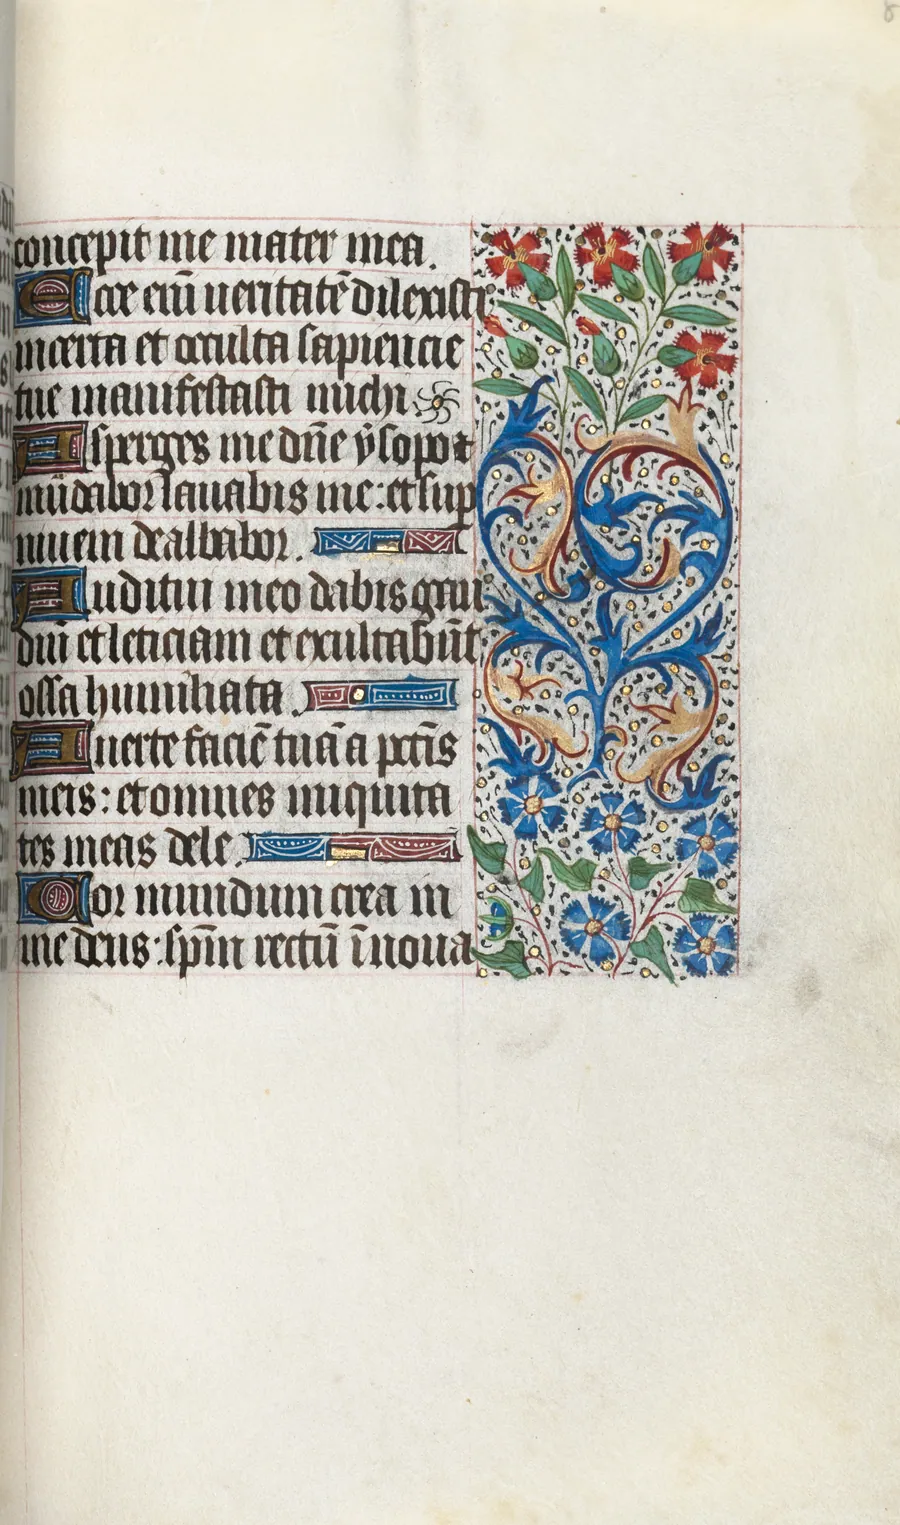 concepit me mater mea.
Ecce eni᷑ veritatē dilexisti
incerta et occulta sapiencie
tue manifestasti michi
Asperges me dn̄e ẏsopo ⁊
mūdabor lauabis me: et sup
niuem dealbabor.
Auditui meo dabis gau
diū et leticiam et exultabūt
ossa humiliata.
Auerte faciē tuā a pctīs
meis: et omnes iniquita
tes meas dele.
Cor mundum crea in
me deus: spm̄ rectū īnoua